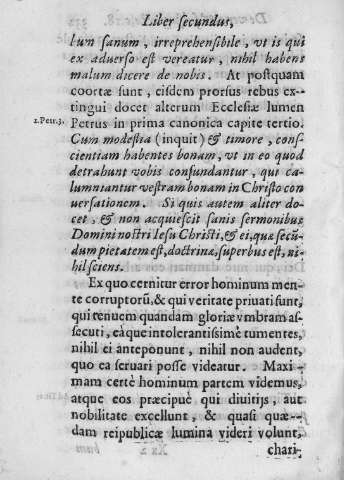 Liber secundus,
bum sanum, irreprehensibile, vt is qui
ex aduerso est vereatur, nihil habens
malum dicere de nobis. At postquam
coortæ sunt, eisdem prorsus rebus ex-
tingui docet alterum Ecclesiæ lumen
2. Petr. 3. Petrus in prima canonica capite tertio.
Cum modestia (inquit) & timore, cons-
cientiam habentes bonam, vt in eo quod
detrahunt vobis confundantur, qui ca-
lumniantur vestram bonam in Christo con
uersationem. Si quis autem aliter do-
cet, & non acquiescit sanis sermonibus
Domini nostri Iesu Christi, & ei, quæ secũ-
dum pietatem est, doctrinæ, superbus est, ni-
hil sciens.
Ex quo cernitur error hominum men-
te corruptorũ, & qui veritate priuati sunt,
qui tenuem quandam gloriæ vmbram as-
secuti, eàque intolerantissimè tumentes,
nihil ei anteponunt, nihil non audent,
quo ea seruari posse videatur. Maxi-
mam certè hominum partem videmus,
atque eos præcipuè qui diuitijs, aut
nobilitate excellunt, & quasi quæ-
dam reipublicæ lumina videri volunt,
chari-